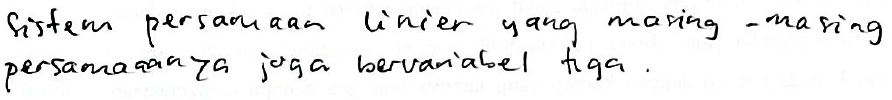 Sistem persamaan linier yang masing - masing
persamaaanya juga bervariabel tiga.